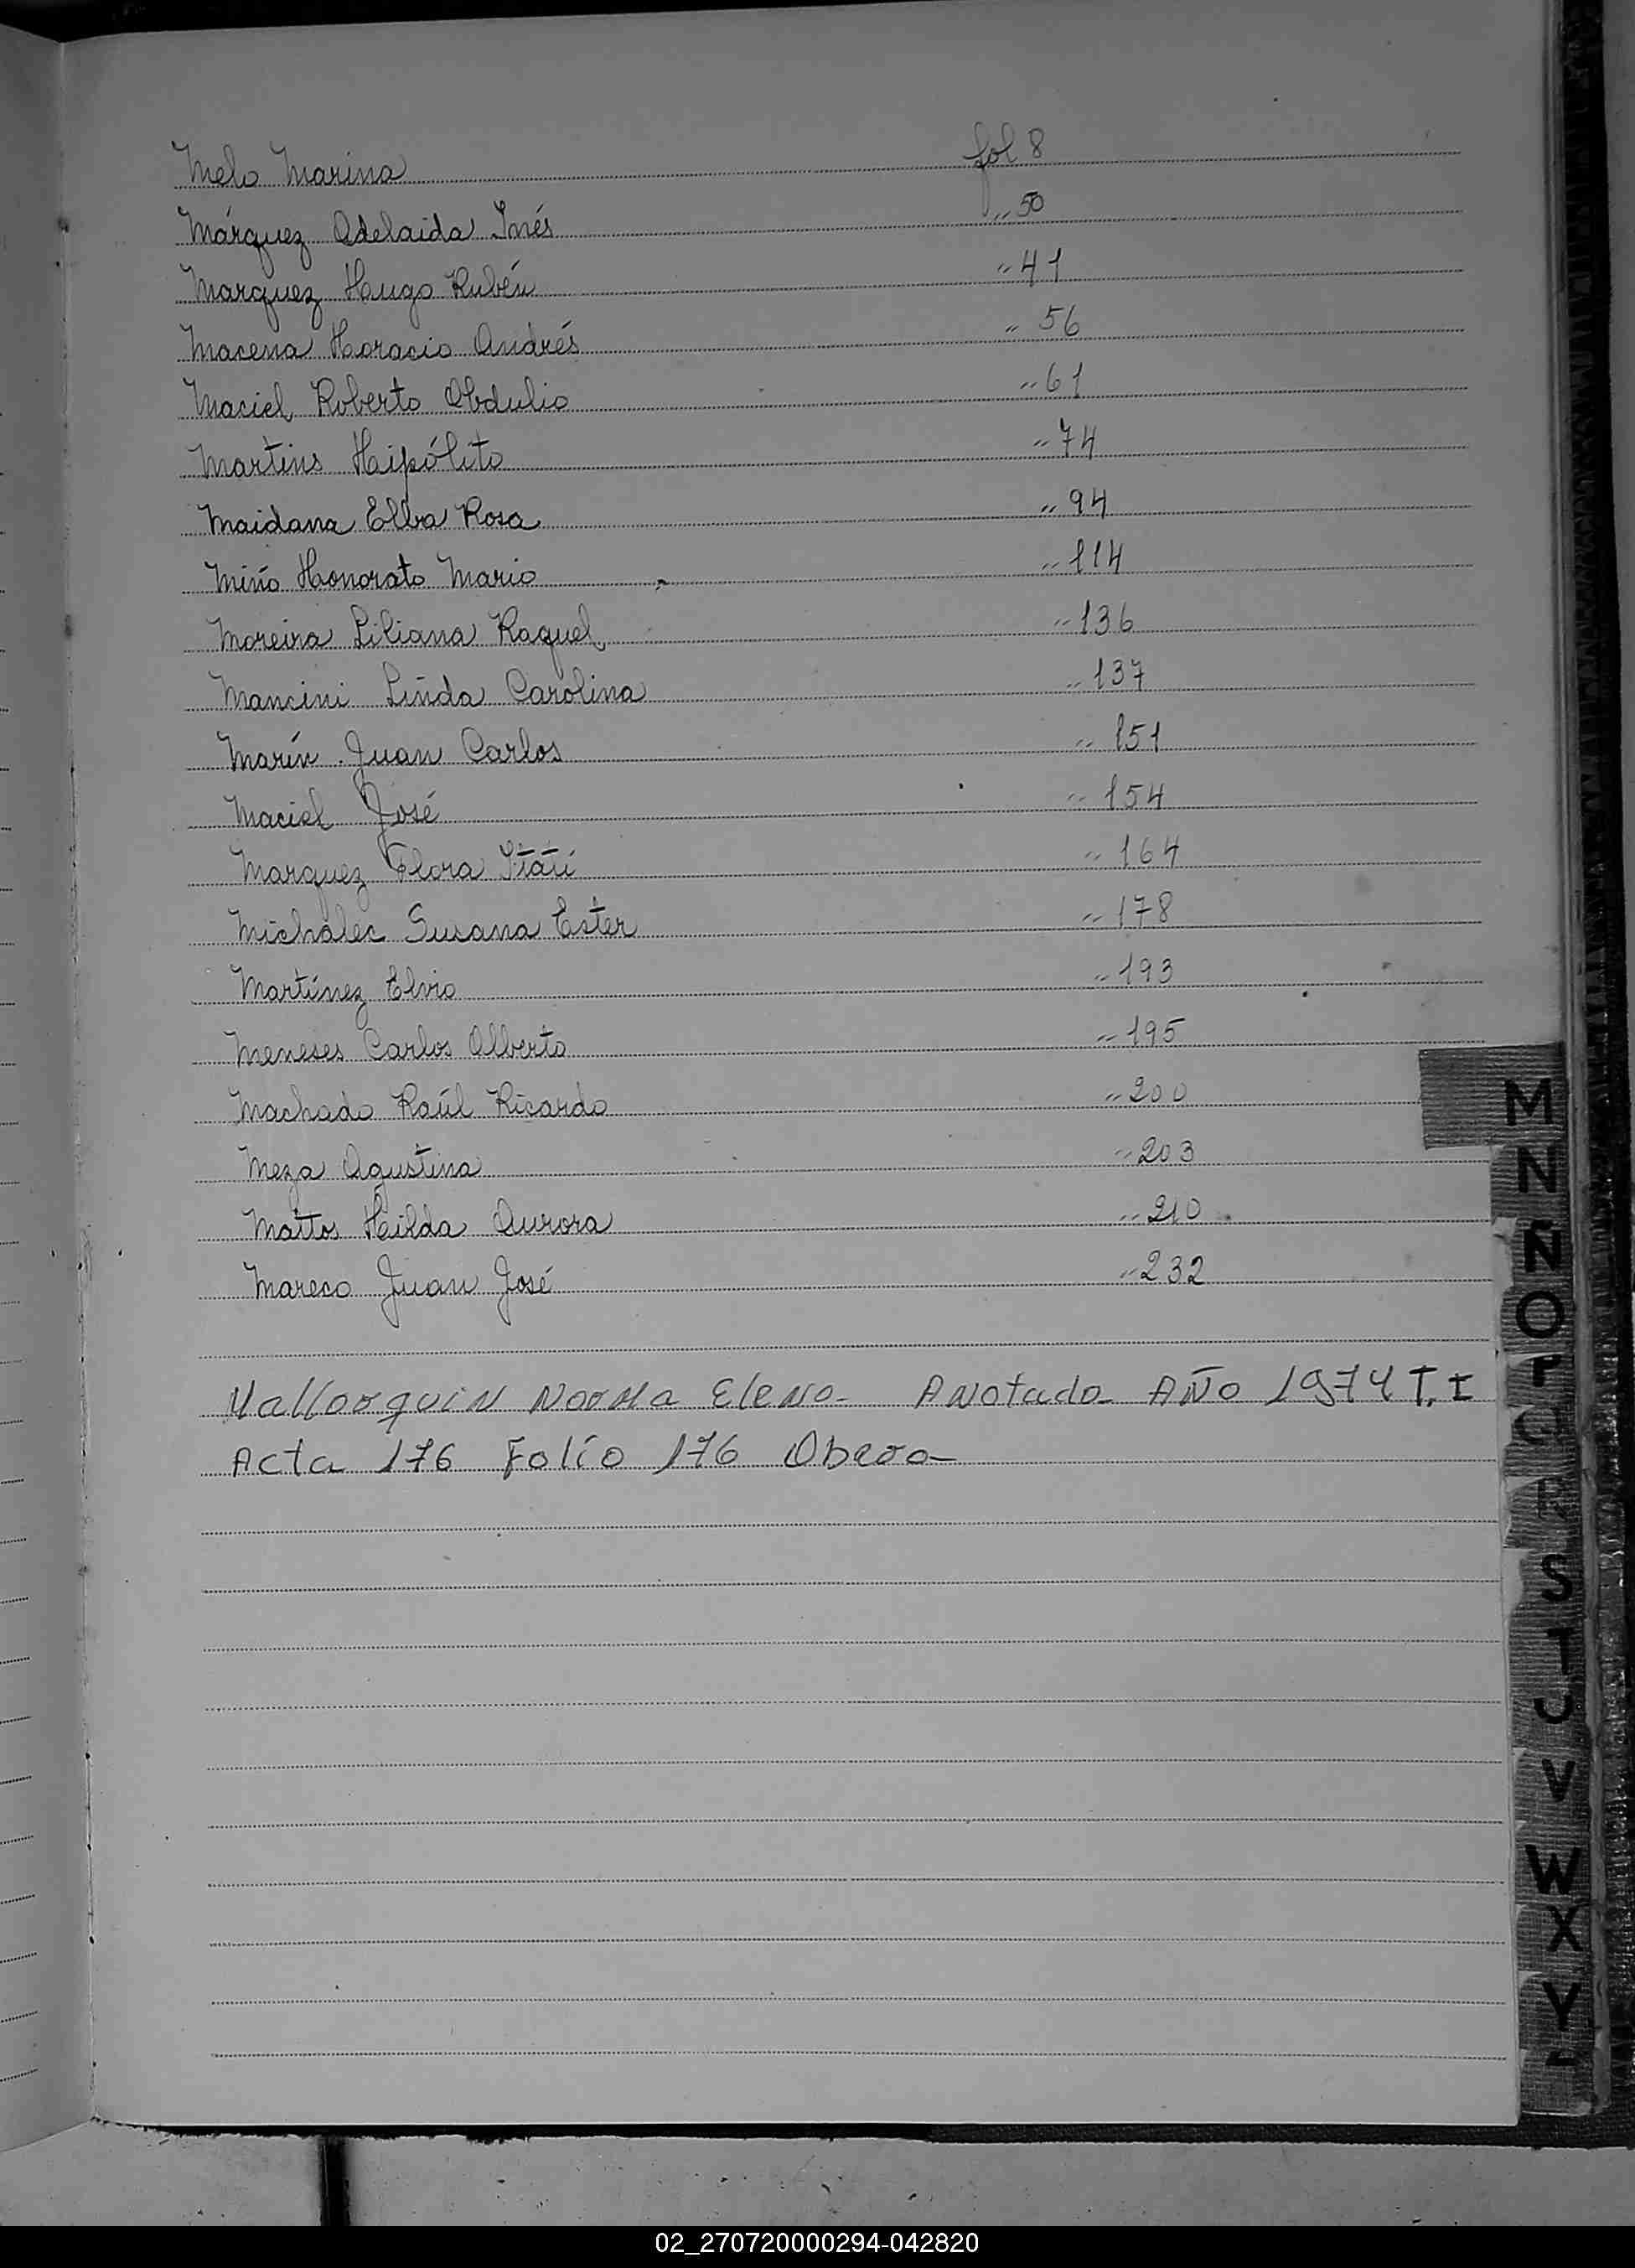 Melo Marina fol 8
Márquez Adelaida Inés " 50
Marquez Hugo Rubén " 41
Macena Horacio Andrés " 56
Maciel Roberto Obdulio " 61
Martins Hipólito " 74
Maidana Elba Rosa " 94
Miño Honorato Mario " 114
Moreira Liliana Raquel " 136
Mancini Linda Carolina " 137
Marín Juan Carlos " 151
Maciel José " 154
Marquez Flora Itatí " 164
Michalec Susana Ester " 178
Martínez Elvio " 193
Meneses Carlos Alberto " 195
Machado Raúl Ricardo " 200
Meza Agustina " 203
Mattos Hilda Aurora " 210
Mareco Juan José " 232
Mallorquin Norma Elena - Anotada - Año 1974 T, I
Acta 176 Folio 176 Obera -
M
N
Ñ
O
P
Q
R
S
T
U
V
W
X
Y
02_270720000294-042820